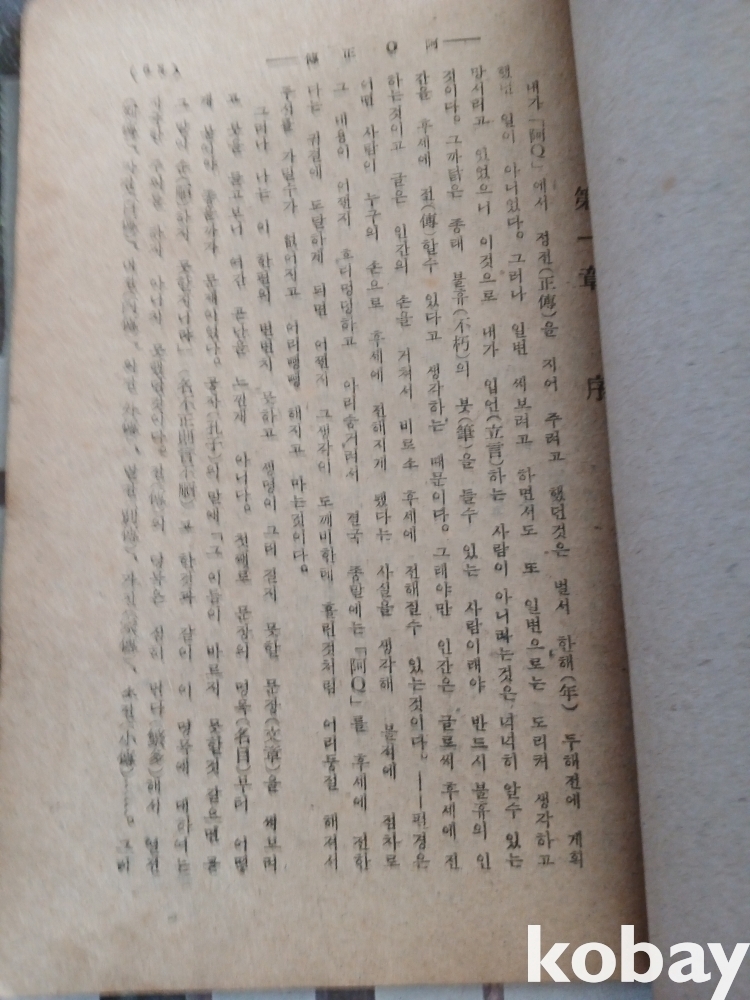 阿 Q 正 傳
第一章 序
내가 「阿Q」에서 정전(正傳)을 지어 주려고 했던것은 벌서 한해(年) 두해전에 계획
했던 일이 아니었다。그러나 일변 써보려고 하면서도 또 일변으로는 도리켜 생각하고
망서리고 있었으니 이것으로 내가 입언(立言)하는 사람이 아니라는것은 넉넉히 알수 있는
것이다。그까닭은 종태 불휴(不朽)의 붓(筆)을 들수 있는 사람이래야 반드시 불휴의 인
간을 후세에 전(傳)할수 있다고 생각하는 때문이다。그래야만 인간은 글로써 후세에 전
하는것이고 글은 인간의 손을 거쳐서 비로소 후세에 전해질수 있는것이다。——필경은
어떤 사람이 누구의 손으로 후세에 전해지게 됐다는 사실을 생각해 볼적에 점차로
그 내용이 어쩐지 흐리멍덩하고 아리숭거려서 결국 종말에는 「阿Q」를 후세에 전한
나는 귀결에 도달하게 되면 어쩐지 그생각이 도깨비한테 홀린것처럼 어리둥절 해져서
가 없어지고 어리뺑뺑 해지고 마는것이다。
그러나 나는 이 한편의 변변치 못하고 생명이 그리 길지 못할 문장(文章)을 써보려
고 붓을 들고보니 여간 곤난을 느낀게 아니다。첫째로 문장의 명목(名目)부터 어떻
게 붙여야 좋을까가 문제이었다。공자(孔子)의 말에 「그 이름이 바르지 못할것 같으면 
그 말이 순(順)하지 못한지니라」(名不正則言不順)고 한것과 같이 이 명목에 대하여는
하지 아니치 못했던것이다。전(傳)의 명목은 심히 번다(繁多)해서 열전
소전(小傳)……。그러
kobay